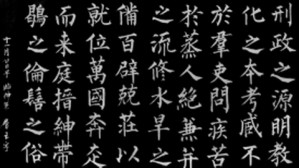 刑政之源明教
化之本考感不
於羣吏問疾苦
於蒸人絶兼并
之流修水旱之
備百辟兢莊以
就位萬國奔走
而来庭搢紳帶
之倫之俗